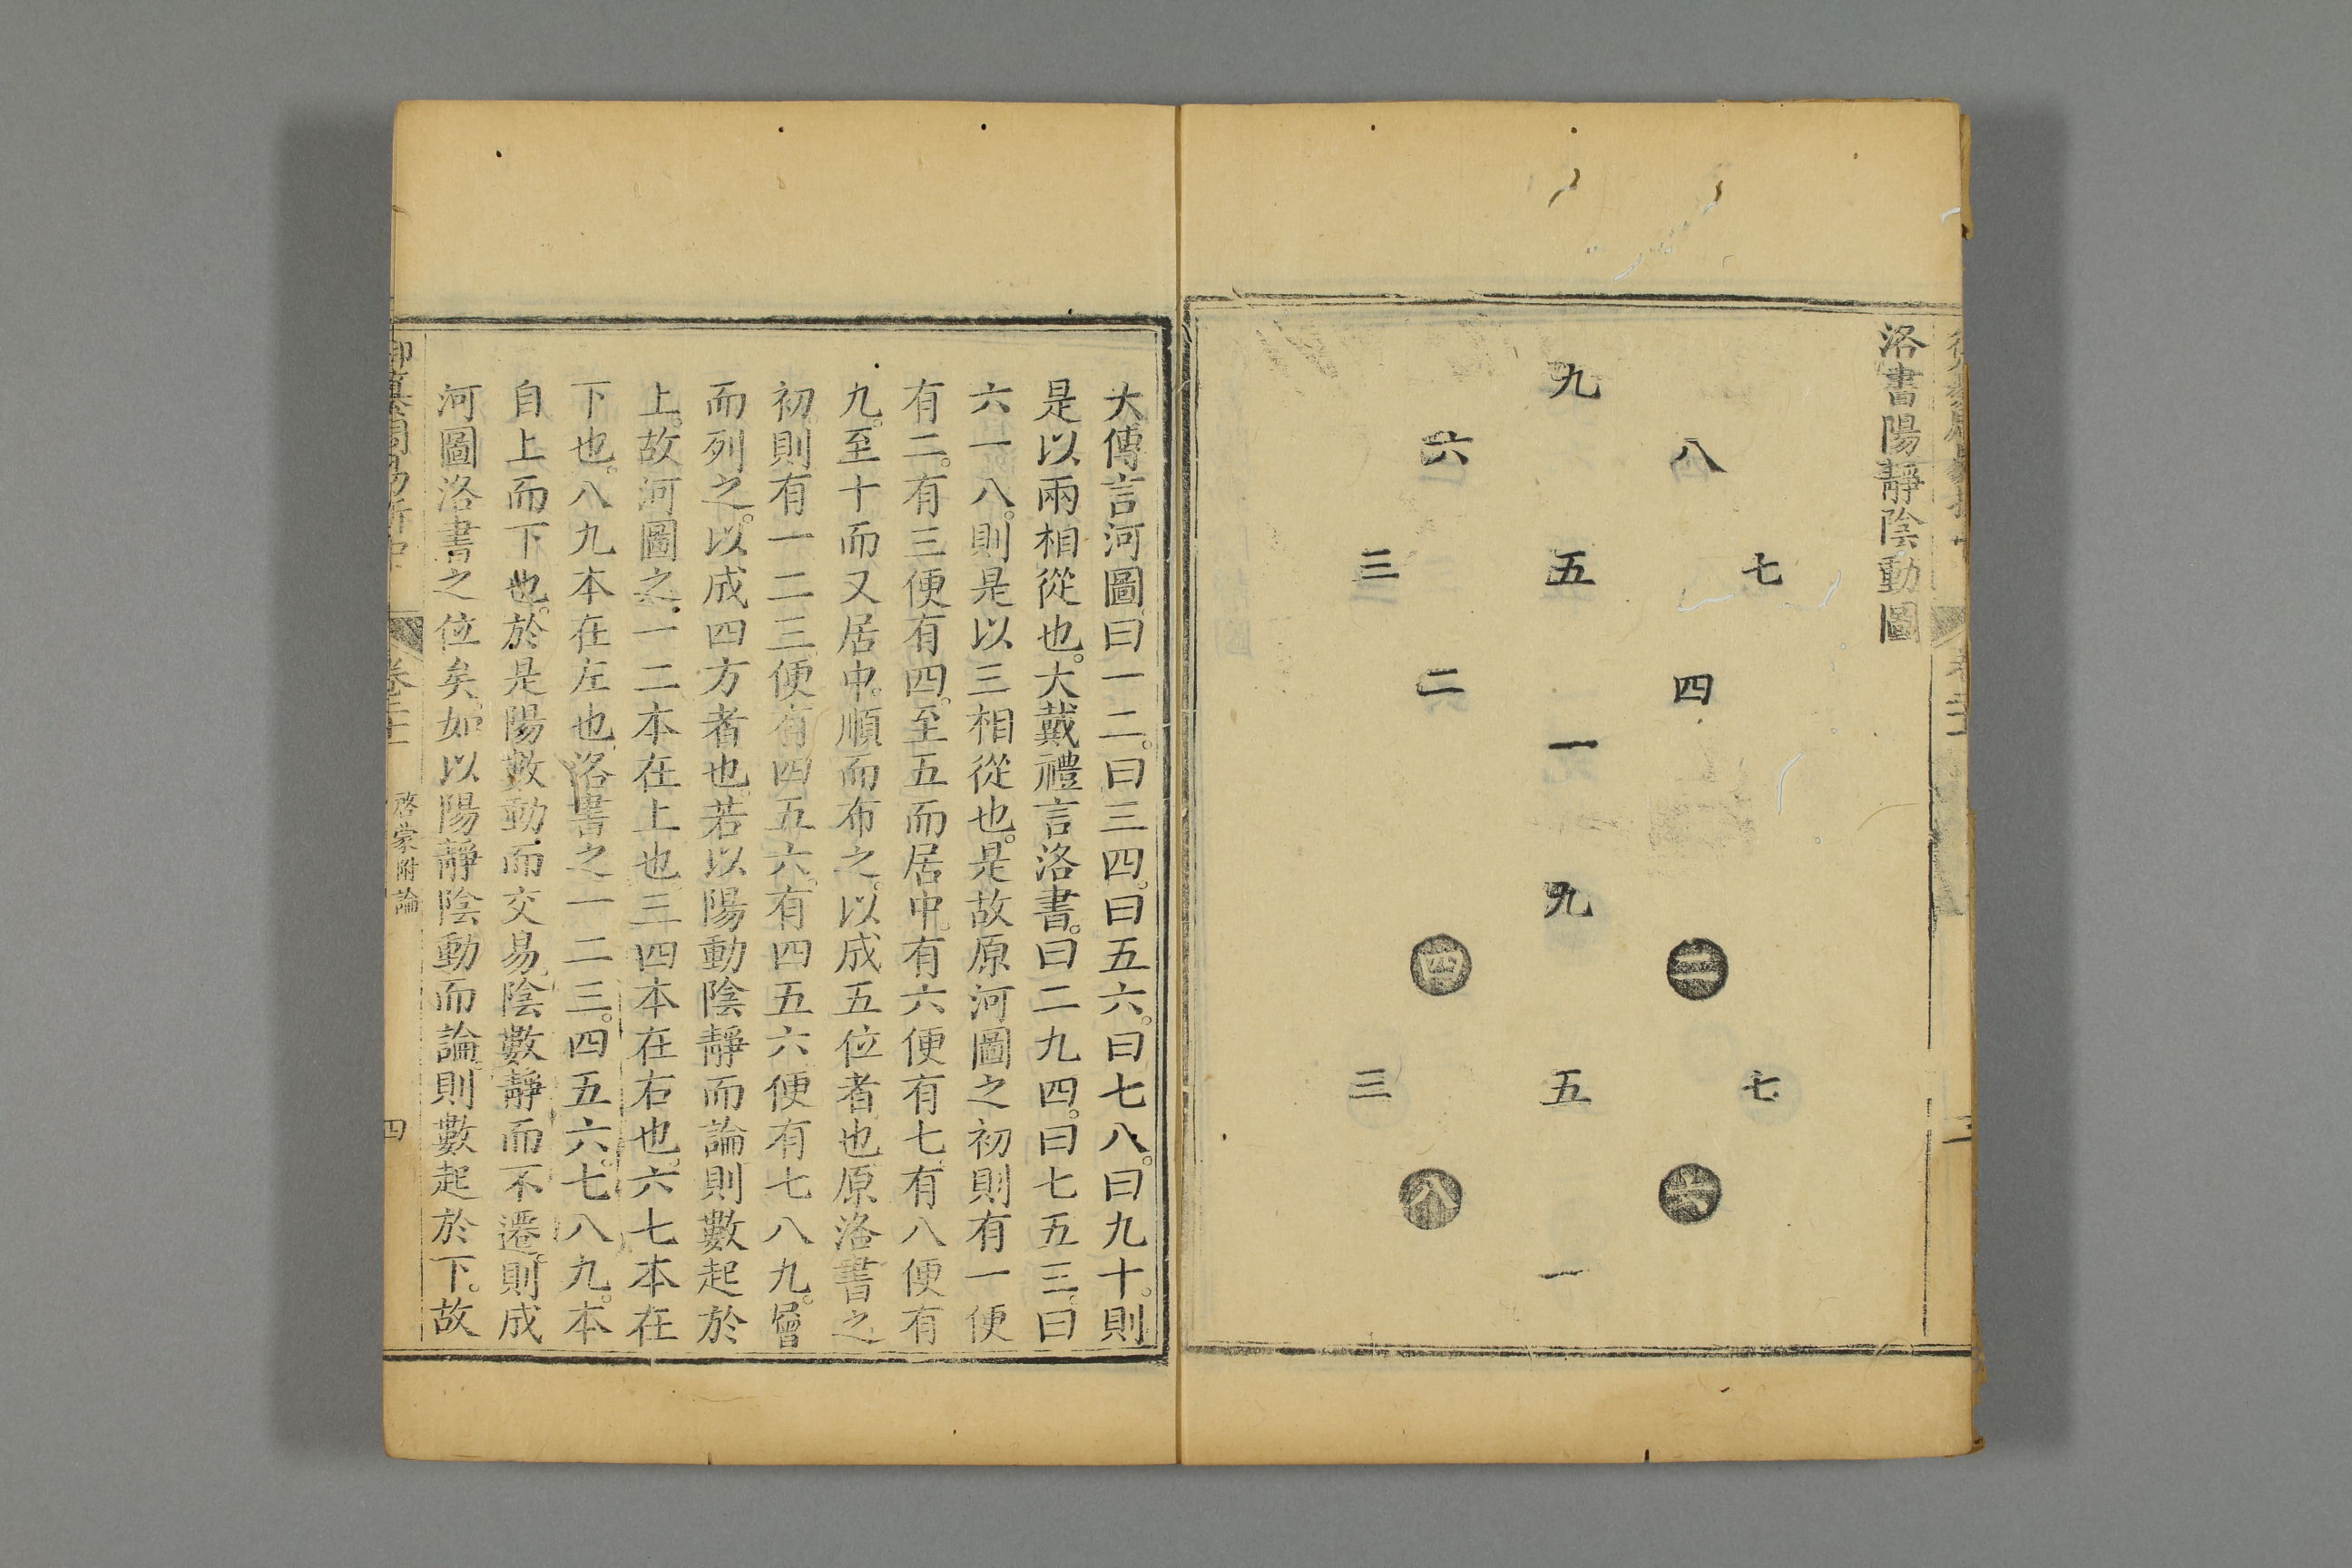 洛書陽靜陰動圖
九
八
六
七
五
三
四
二
一
九
二
四
七
五
三
六
八
一
大傳言河圖曰一二。曰三四。曰五六。曰七八。曰九十。則
是以兩相從也。大戴禮言洛書。曰二九四。曰七五三。曰
六一八。則是以三相從也。是故原河圖之初則有一便
有二。有三便有四。至五而居中。有六便有七。有八便有
九。至十而又居中。順而布之。以成五位者也。原洛書之
初。則有一二三。便有四五六。有四五六便有七八九。層
而列之。以成四方者也。若以陽動陰靜而論則數起於
上。故河圖之一二本在上也。三四本在右也。六七本在
下也。八九本在左也。洛書之一二三。四五六。七八九。本
自上而下也。於是陽數動而交易。陰數靜而不遷。則成
河圖洛書之位矣。如以陽靜陰動而論。則數起於下。故
御纂周易折中 卷二十一 啓蒙附論 四